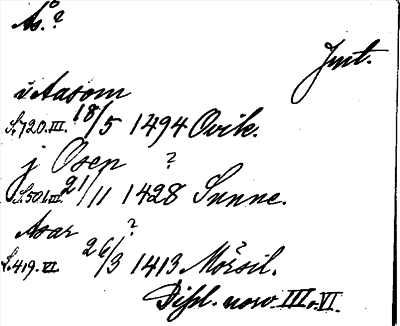 Ås.?
Jmt.
i Aasom
S. 720. III. 18/5 1494 Ovik.
j Osen ?
S. 501. III. 21/11 1428 Sunne.
Asar ?
S. 419. VI. 26/3 1413 Mörsil.
Dipl. norv. III, VI.